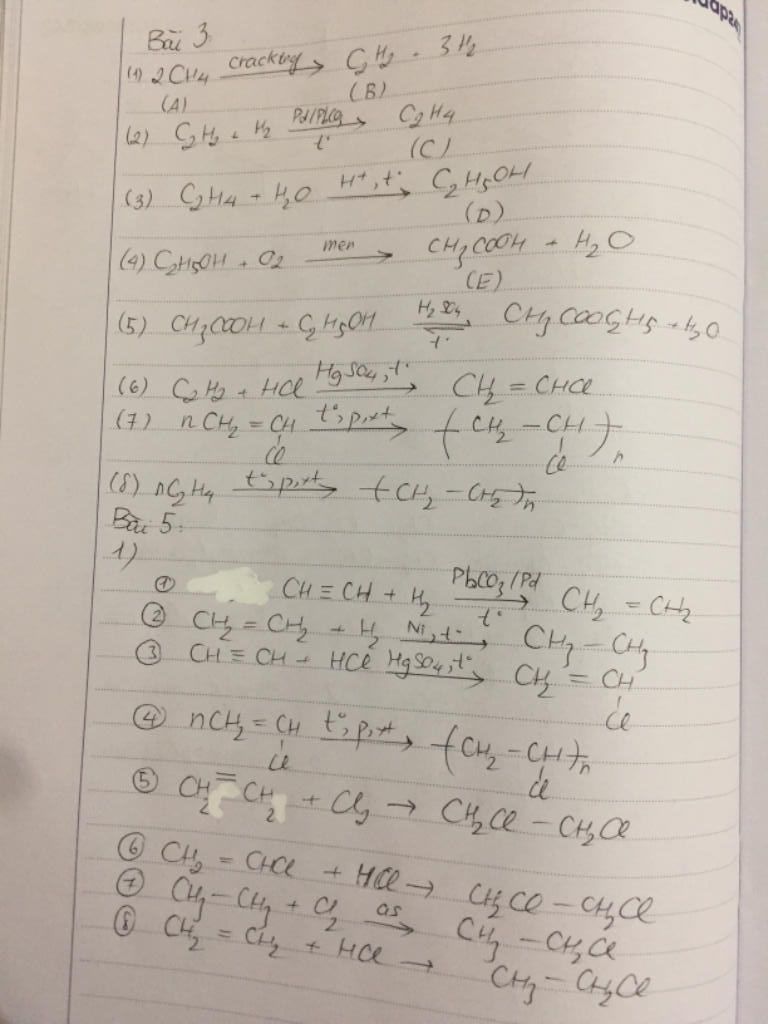 Bài 3.
(1) 2CH4 cracking → C2H2 + 3H2
(A) (B)
(2) C2H2 + H2 Pd/PbCO3 t° → C2H4
(C)
(3) C2H4 + H2O H+, t° → C2H5OH
(D)
(4) C2H5OH + O2 men → CH3COOH + H2O
(E)
(5) CH3COOH + C2H5OH H2SO4 t° ⇌ CH3COOC2H5 + H2O
(6) C2H2 + HCl HgSO4, t° → CH2 = CHCl
(7) nCH2 = CH t°, p, xt → ( CH2 – CH )n
Cl Cl
(8) nC2H4 t°, p, xt → (CH2 – CH2)n
Bài 5:
1)
① CH ≡ CH + H2 PbCO3/Pd t° → CH2 = CH2
② CH2 = CH2 + H2 Ni, t° → CH3 – CH3
③ CH ≡ CH + HCl HgSO4, t° → CH2 = CH
Cl
④ nCH2 = CH t°, p, xt → (CH2 – CH)n
Cl Cl
⑤ CH2 = CH2 + Cl2 → CH2Cl – CH2Cl
⑥ CH2 = CHCl + HCl → CH2Cl – CH2Cl
⑦ CH3 – CH3 + Cl2 as → CH3 – CH2Cl
⑧ CH2 = CH2 + HCl → CH3 – CH2Cl